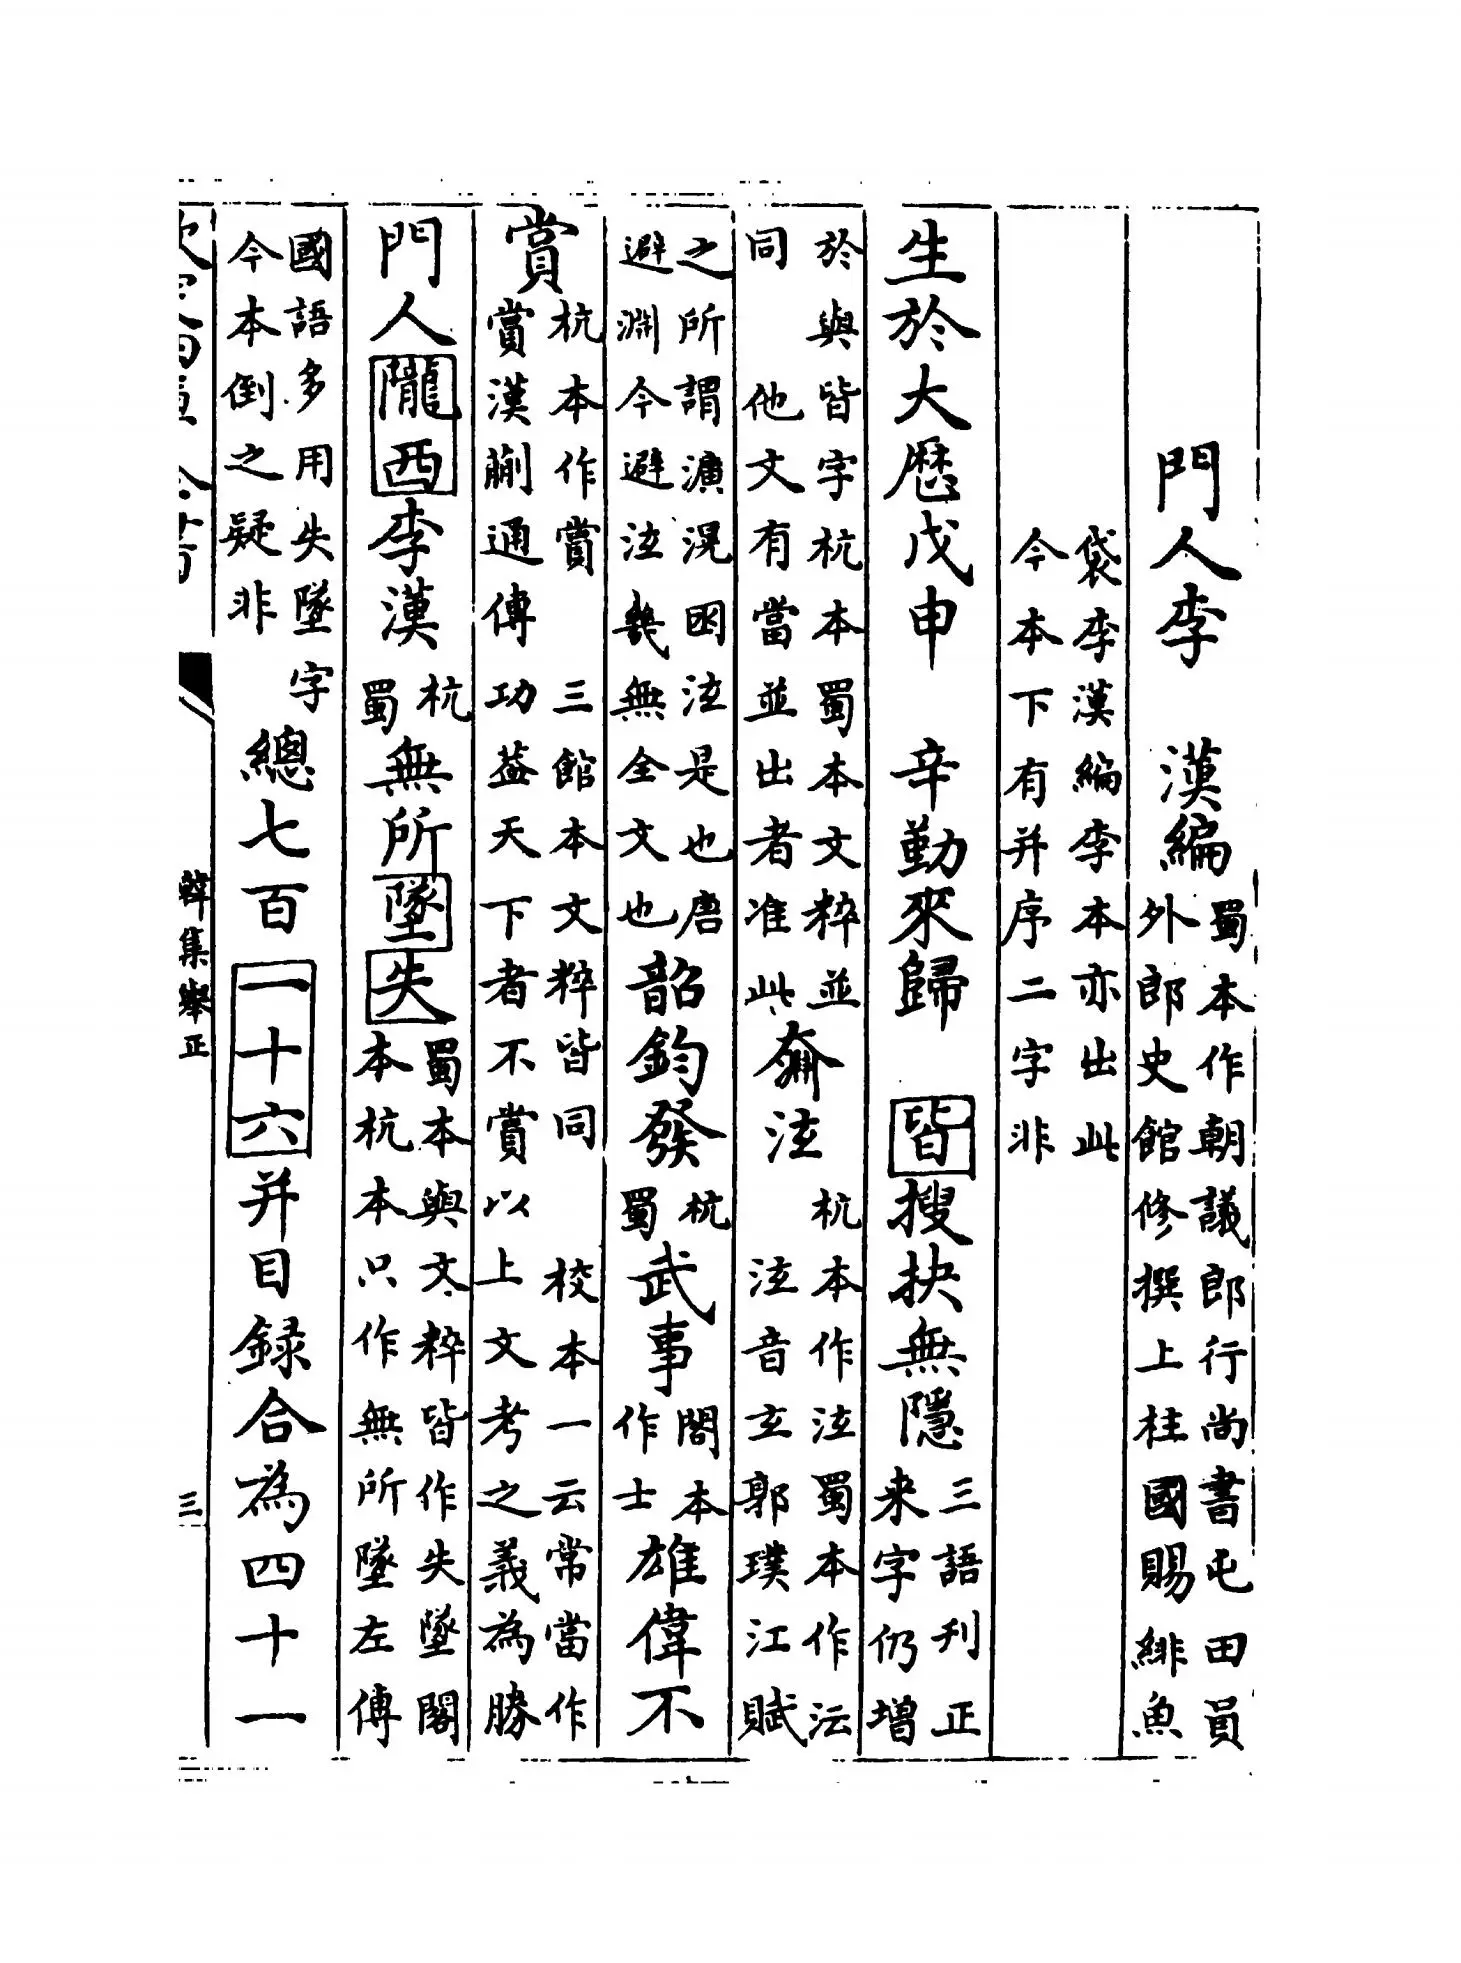 門人李漢編蜀本作朝議郎行尚書屯田員外郎史館修撰上柱國賜緋魚
袋李漢編李本亦出此今本下有并序二字非
生於大厯戊申辛勤來歸皆搜抉無隱三語刊正来字仍增
於與皆字杭本蜀本文粹並同他文有當並出者准此奫泫杭本作泫蜀本作沄泫音玄郭璞江賦
之所謂瀇滉囦泫是也唐避淵今避泫幾無全文也韶鈞發杭蜀武事閣本作士雄偉不
賞杭本作賞賞漢蒯通傳功葢天下者不賞以上文考之義為勝三館本文粹皆同校本一云常當作
門人隴西李漢杭蜀無所墜失蜀本與文粹皆作失墜閣本杭本只作無所墜左傳
國語多用失墜字今本倒之疑非總七百一十六并目録合為四十一
韓集舉正
三